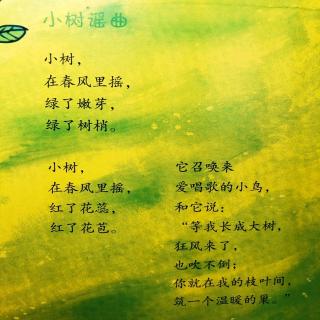 小树谣曲
小树，
在春风里摇，
绿了嫩芽，
绿了树梢。
小树，
在春风里摇，
红了花蕊，
红了花苞。
它召唤来
爱唱歌的小鸟，
和它说：
“等我长成大树，
狂风来了，
也吹不倒；
你就在我的枝叶间，
筑一个温暖的巢。”